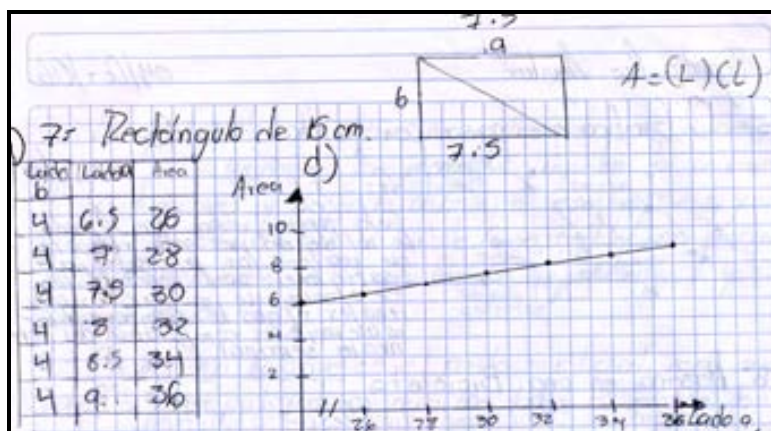 7.5
a
A=(L)(L)
b
7.5
7= Rectángulo de 15 cm.
d)
Lado b Lado a Area
4 6.5 26
4 7 28
4 7.5 30
4 8 32
4 8.5 34
4 9. 36
Area
10
8
6
4
2
26 28 30 32 34 36 Lado a